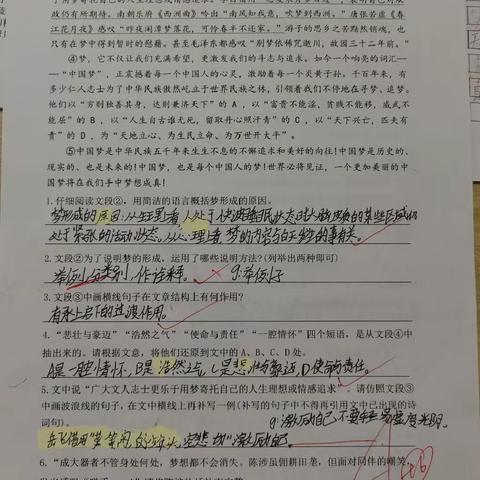 政仍有所期待。南朝乐府《西洲曲》吟出“南风知我意，吹梦到西洲。”唐张若虚《春
江花月夜》感叹“昨夜闲潭梦落花，可怜春半不还家。”游子的思乡之苦黯然销魂，也
只有在梦中得到暂时的慰藉。甚至毛泽东都感叹“别梦依稀咒逝川，故园三十二年前。”
④梦，它不仅让我们充满希望，更激发我们的斗志与追求。如今一个响亮的词汇—
—“中国梦”，正震撼着每一个中国人的心灵，激励着每一个炎黄子孙。千百年来，有
多少仁人志士为了中华民族傲然屹立于世界民族之林，引领着我们不停地在寻梦、追梦。
他们以“穷则独善其身，达则兼济天下”的 A ，以“富贵不能淫，贫贱不能移，威武不
能屈”的 B ，以“人生自古谁无死，留取丹心照汗青”的 C ，以“天下兴亡，匹夫有
责”的 D ，为“天地立心、为生民立命、为万世开太平”。
⑤中国梦是中华民族五千年来生生不息的不懈追求和美好的向往！中国梦是历史的、
现实的、也是未来的！中国梦，也是每个中国人的梦！世界必将见证，一个更加美丽的中
国梦将在我们手中梦想成真！
1.仔细阅读文段②，用简洁的语言概括梦形成的原因。
梦形成的原因:从生理上看,人处于快速睡眠状态时,大脑皮质的某些区域仍
处于紧张的活动状态。从心理上看,梦的内容与白天经历的事有关。
2.文段②为了说明梦的形成，运用了哪些说明方法？(列举出两种即可)
举例 分类别,作诠释。 9:举例子
3.文段③中画横线句子在文章结构上有何作用？
有承上启下的过渡作用。
4.“悲壮与豪迈”“浩然之气”“使命与责任”“一腔情怀”四个短语，是从文段④中
抽出来的。请根据文意，将他们还原到文中的A、B、C、D处。
A是一腔情怀,B是浩然之气,C是悲壮与豪迈,D使命与责任。
5.文中说“广大文人志士更乐于用梦寄托自己的人生理想或情感追求”。请仿照文段③
中画波浪线的句子，在文中横线上再补写一例(补写的句子中不得再引用文中已出现的诗
词句)。
激励自己不要
岳飞借用“莫等闲，白了少年头,空悲切”激励自己
6.“成大器者不管身处何处，梦想都不会消失。陈涉虽佣耕田垄，但面对同伴的嘲笑，